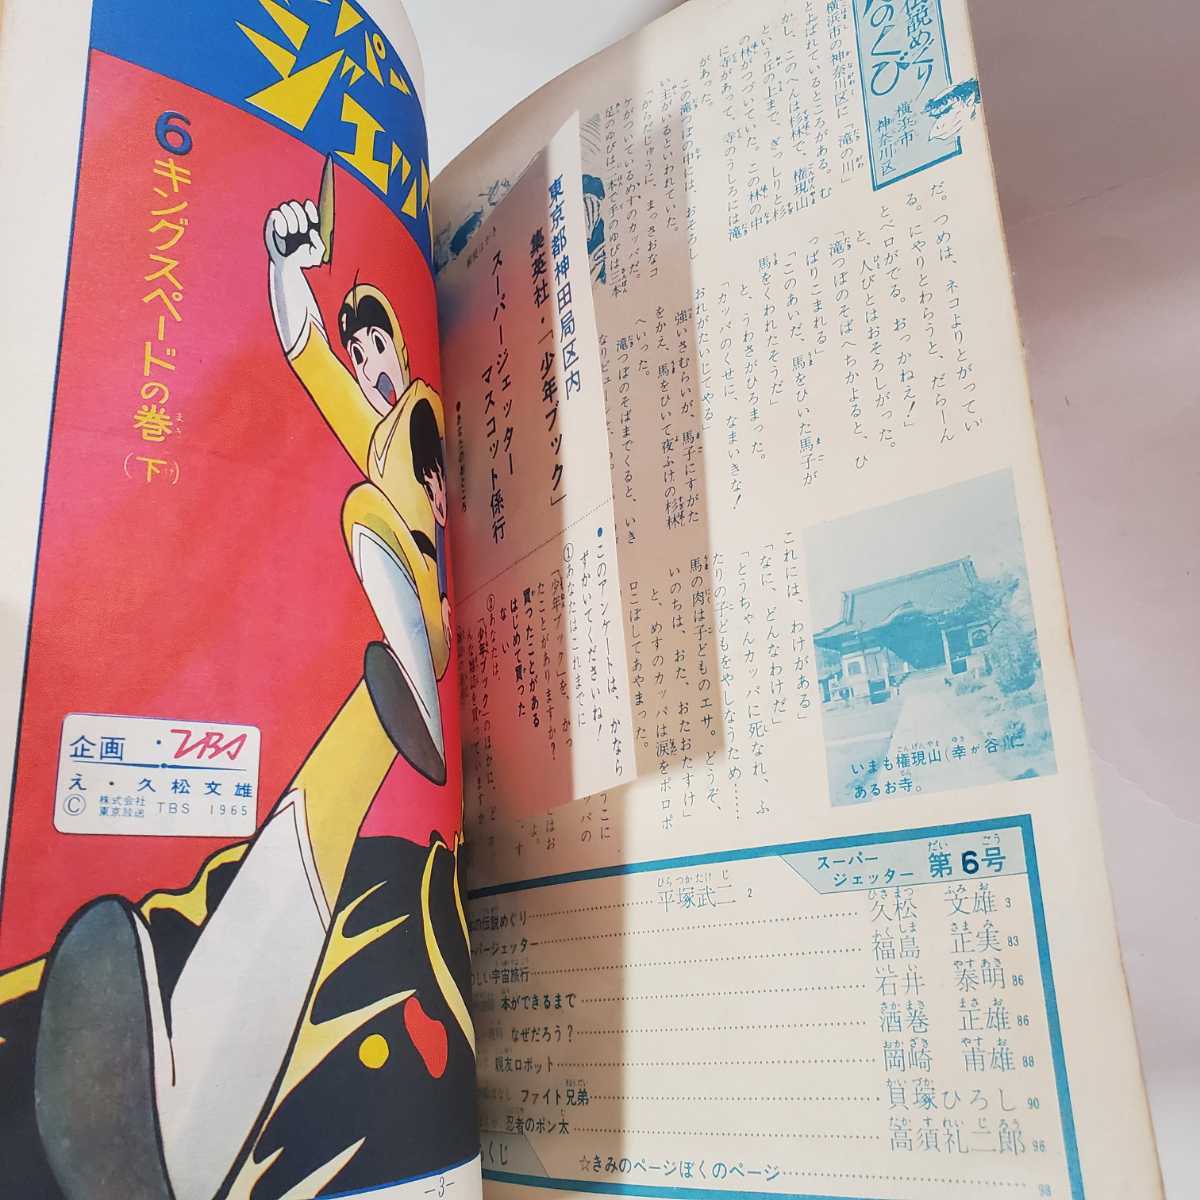 ジェッ
6 キングスペードの巻(下)
企画・TBS
え・久松文雄
© 株式会社東京放送 TBS 1965
—3—
伝説めぐり
横浜市神奈川区
横浜市の神奈川区に「滝の川」
とよばれているところがある。む
かし、このへんは杉林で、権現山
という丘の上まで、ぎっしりと杉
の林がつづいていた。この林の中
に寺があって、寺のうしろには滝
があった。
この滝つぼの中には、おそろし
い主がいるといわれていた。
「からだじゅうに、まっさおなコ
ケがついているめすのカッパだ。
足のゆびは二本で手のゆびは三本
だ。つめは、ネコよりとがってい
る。にやりとわらうと、だらーん
とベロがでる。おっかねえ!」
と、人びとはおそろしがった。
「滝つぼのそばへちかよると、ひ
っぱりこまれる」
「このあいだ、馬をひいた馬子が
馬をくわれたそうだ」
と、うわさがひろまった。
「カッパのくせに、なまいきな!
おれがたいじてやる」
強いさむらいが、馬子にすがた
をかえ、馬をひいて夜ふけの杉林
へいった。
滝つぼのそばまでくると、いき
これには、わけがある」
「なに、どんなわけだ」
「とうちゃんカッパに死なれ、ふ
たりの子どもをやしなうため……
馬の肉は子どものエサ。どうぞ、
いのちは、おた、おたおたすけ」
と、めすのカッパは涙をポロポ
ロこぼしてあやまった。
いまも権現山(幸が谷)にあるお寺。
東京都神田局区内
集英社・「少年ブック」
スーパージェッター
マスコット係行
●このアンケートは、かなら
ずかいてくださいね!
①あなたはこれまでに
「少年ブック」を、かっ
たことがありますか?
買ったことがある
はじめて買った
ない
②あなたは、
「少年ブック」のほかに、ど
スーパージェッター 第6号
の伝説めぐり 平塚武二 2
ーパージェッター 久松文雄 3
しい宇宙旅行 福島正実 83
本ができるまで 石井泰明 86
なぜだろう? 酒巻正雄 86
親友ロボット 岡崎甫雄 88
ファイト兄弟 貝塚ひろし 90
忍者のポン太 高須礼二郎 96
☆きみのページぼくのページ 98